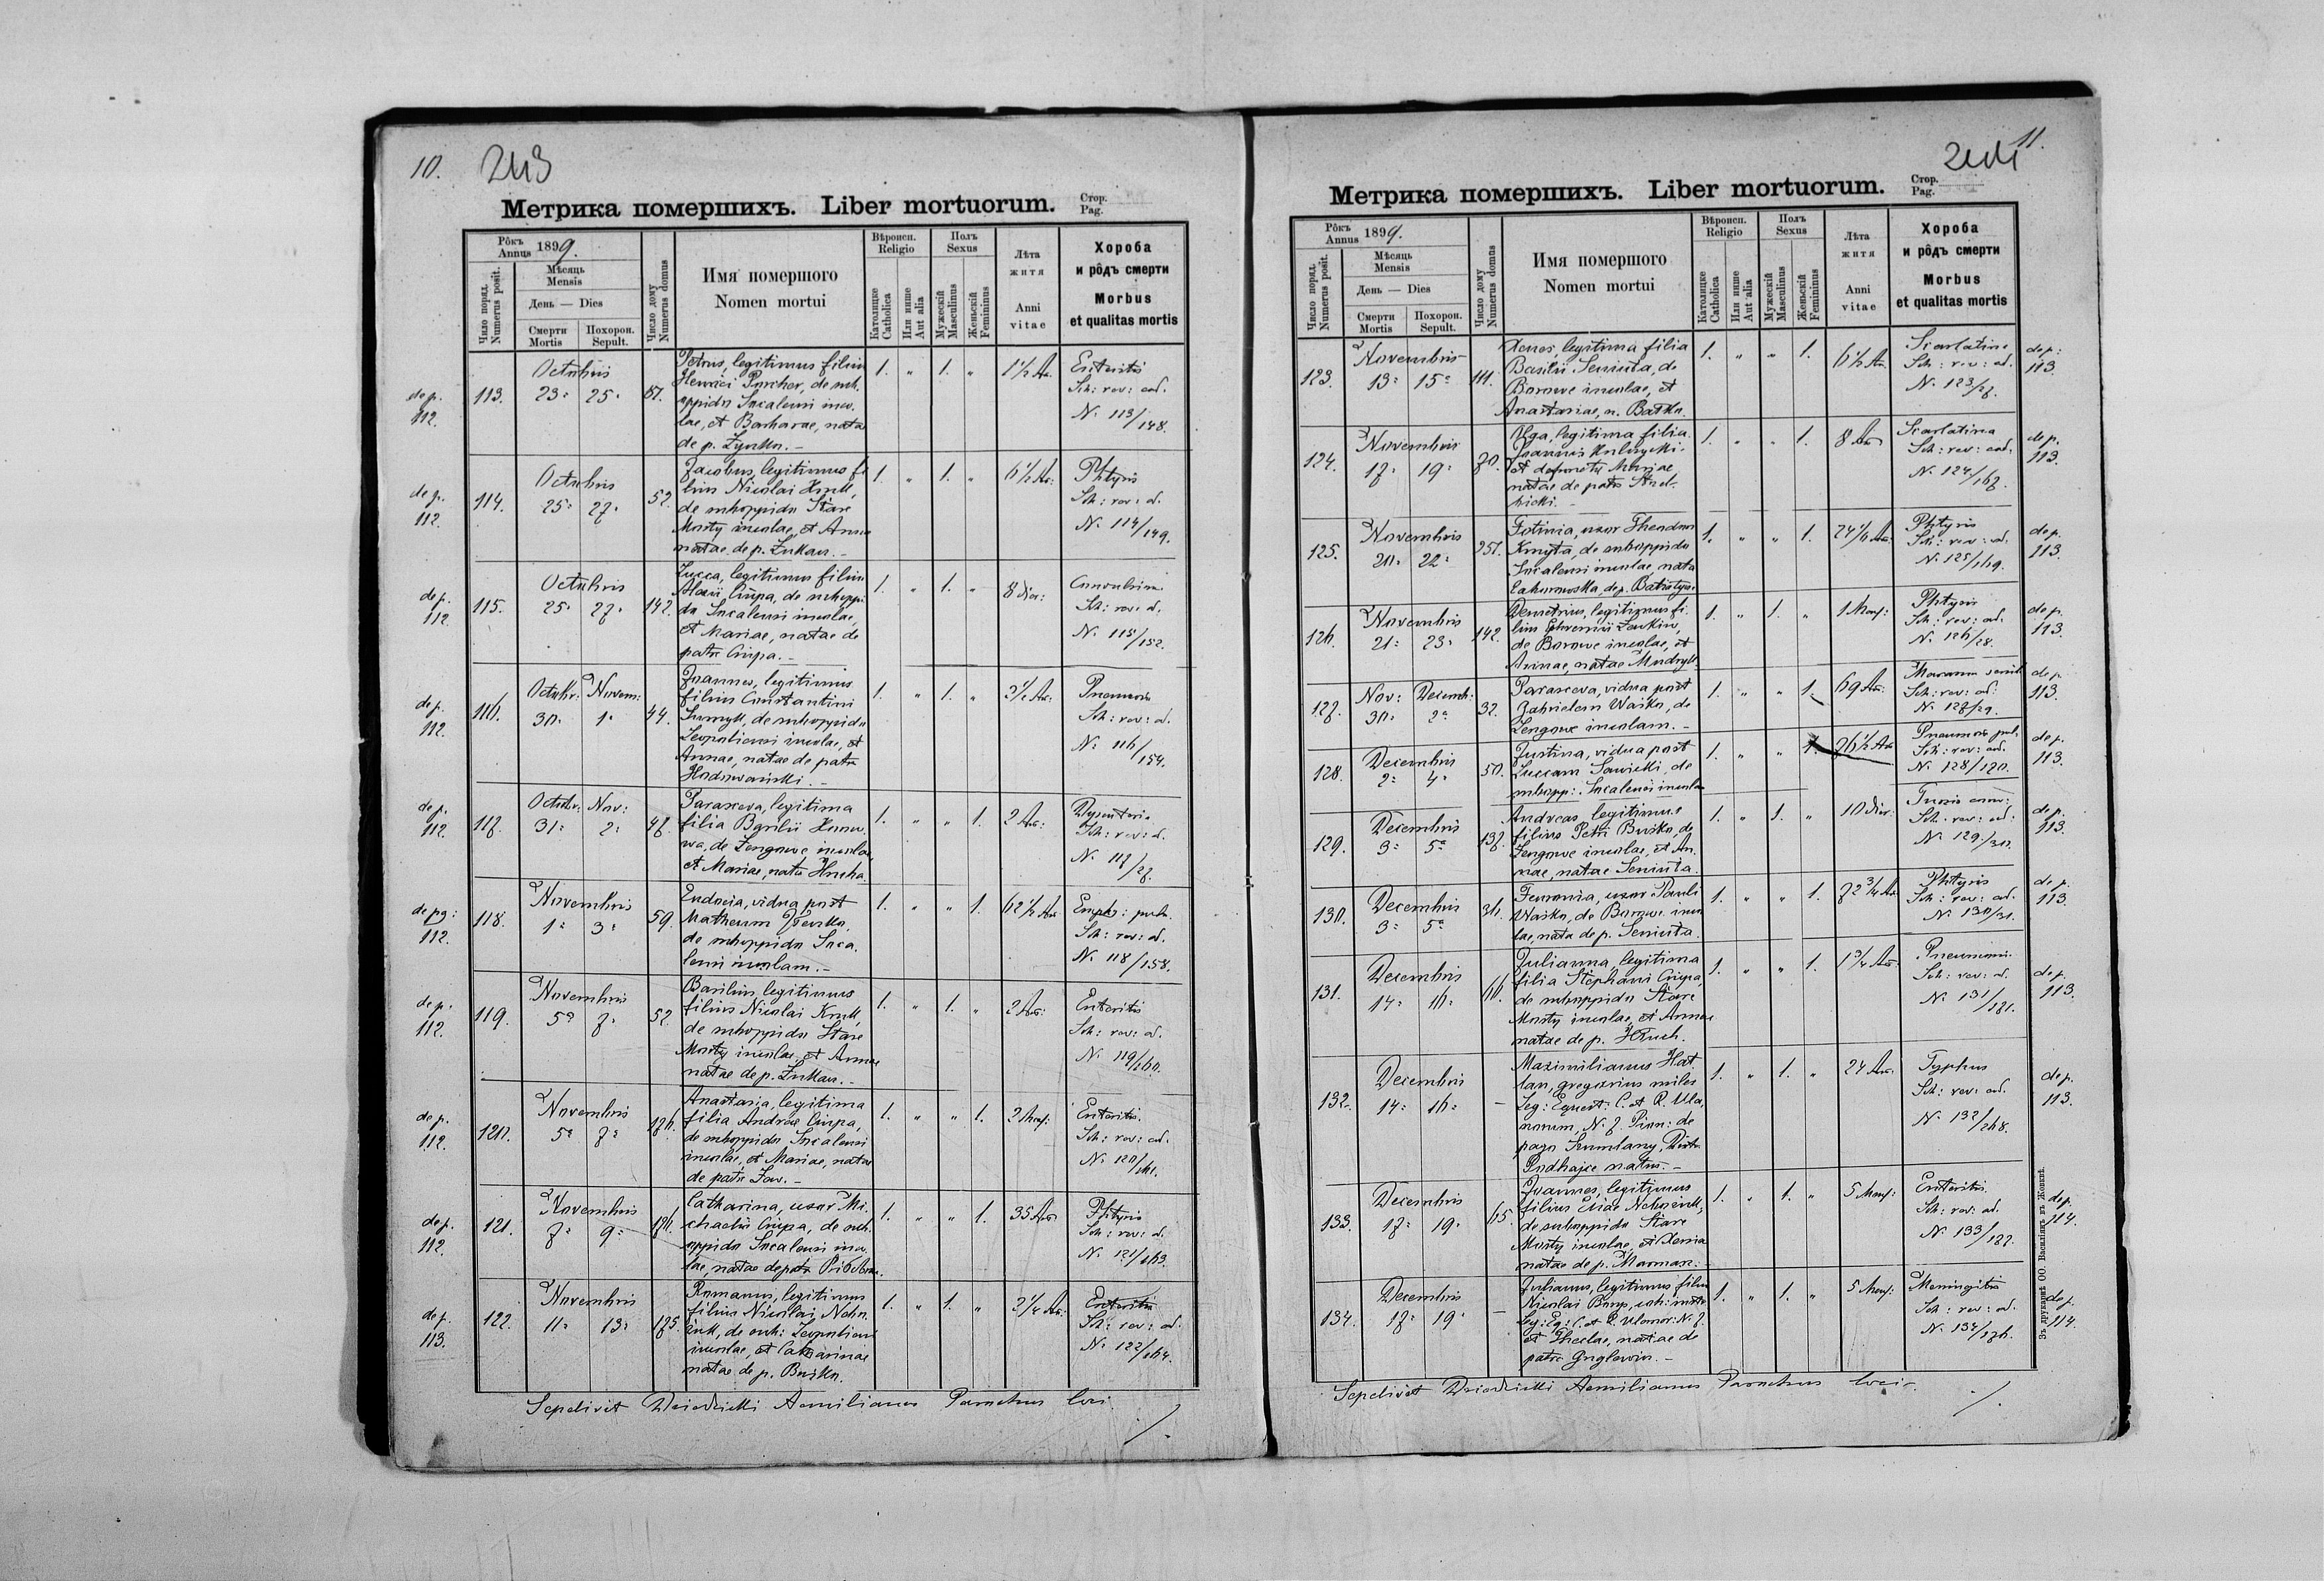 10.
243
Метрика помершихъ. Liber mortuorum.
Стор.
Pag.
Рôкъ
Annus 1899.
Число поряд.
Numerus posit.
Мѣсяць
Mensis
День — Dies
Смерти
Mortis
Похорон.
Sepult.
Число дому
Numerus domus
Имя помершого
Nomen mortui
Вѣроисп.
Religio
Католицке
Catholica
Или инше
Aut alia
Полъ
Sexus
Мужескій
Masculinus
Женьскій
Femininus
Лѣта
житя
Anni
vitae
Хороба
и рôдъ смерти
Morbus
et qualitas mortis
de p.
112.
113.
Octobris
23. 25.
67.
Petrus, legitimus filius
Henrici Porcher, de sub-
oppido Socalensi inco-
lae, et Barbarae, nata
de p. Zynko. –
1. " 1. "
1½ An.
Enteritis
Sch: rev: ad.
N. 113/148.
de p.
112.
114.
Octobris
25. 27.
52.
Jacobus, legitimus fi-
lius Nicolai Kruk,
de suboppido Stare
Mosty incolae, et Annae
natae de p. Zukow. –
1. " 1. "
6½ An:
Phtysis
Sch: rev: ad.
N. 114/149.
de p.
112.
115.
Octobris
25. 27.
142.
Lucca, legitimus filius
Alexii Ciupa, de suboppi-
do Socalensi incolae,
et Mariae, natae de
patre Ciupa. –
1. " 1. "
8 dier:
Convulsiones
Sch: rev: ad.
N. 115/152.
de p.
112.
116.
Octobr: Novem:
30. 1.
44.
Joannes, legitimus
filius Constantini
Sumyk, de suboppido
Leopoliensi incolae, et
Annae, natae de patre
Hodowański. –
1. " 1. "
Sch: rev: ad.
N. 116/154.
de p.
112.
117.
Octobr: Nov:
31. 2.
47.
Parasceva, legitima
filia Basilii
de Zengowe incolae,
et Mariae, nata Hrucha.
1. " " 1.
2 An:
Dysenteria
Sch: rev: ad.
N. 117/27.
de pg:
112.
118.
Novembris
1. 3.
59.
Eudocia, vidua post
Matheum
de suboppido Soca-
lensi incolam. –
1. " " 1.
62½ An
Emph: pulm.
Sch: rev: ad.
N. 118/158.
de p.
112.
119.
Novembris
5. 7.
52.
Basilius, legitimus
filius Nicolai Kruk,
de suboppido Stare
Mosty incolae, et Annae
natae de p. Zukow. –
1. " 1. "
2 An:
Enteritis
Sch: rev: ad.
N. 119/160.
de p.
112.
120.
Novembris
5. 7.
176.
Anastasia, legitima
filia Andreae Ciupa,
de suboppido Socalensi
incolae, et Mariae, natae
de patre Zow. –
1. " " 1.
2 Mens:
Enteritis.
Sch: rev: ad.
N. 120/161.
de p.
112.
121.
Novembris
7. 9.
176.
Catharina, uxor Mi-
chaelis Ciupa, de sub-
oppido Socalensi inco-
lae, natae de patre
1. " " 1.
35 An
Phtysis
Sch: rev: ad.
N. 121/163.
de p.
113.
122.
Novembris
11. 13.
175.
Romanus, legitimus
filius Nicolai
de sub: Leopoliensi
incolae, et Catharinae
natae de p. Busko.
1. " 1. "
Enteritis
Sch: rev: ad.
N. 122/164.
Sepelivit Dziedzicki Aemilianus Parochus loci.
11.
244
Метрика помершихъ. Liber mortuorum.
Стор.
Pag.
Рôкъ
Annus 1899.
Число поряд.
Numerus posit.
Мѣсяць
Mensis
День — Dies
Смерти
Mortis
Похорон.
Sepult.
Число дому
Numerus domus
Имя помершого
Nomen mortui
Вѣроисп.
Religio
Католицке
Catholica
Или инше
Aut alia
Полъ
Sexus
Мужескій
Masculinus
Женьскій
Femininus
Лѣта
житя
Anni
vitae
Хороба
и рôдъ смерти
Morbus
et qualitas mortis
123.
Novembris
13. 15.
111.
Xenes, legitima filia
Basilii Seniuta, de
Borowe incolae, et
Anastasiae, n. Baśko.
1. " " 1.
6½ An.
Scarlatina
Sch: rev: ad.
N. 123/27.
de p:
113.
124.
Novembris
17. 19.
70.
Olga, legitima filia
Joannis
et defunctae Mariae,
natae de patre
1. " " 1.
8 An
Scarlatina
Sch: rev: ad.
N. 124/167.
de p.
113.
125.
Novembris
20. 22.
251.
Fotinia, uxor Theodori
Kmyta, de suboppido
Socalensi incolae, nata
1. " " 1.
Phtysis
Sch: rev: ad.
N. 125/169.
de p.
113.
126.
Novembris
21. 23.
142.
Demetrius, legitimus fi-
lius Ephremii Zenkiw,
de Borowe incolae, et
Annae, natae Mudryk
1. " 1. "
1 Mens:
Phtysis
Sch: rev: ad.
N. 126/28.
de p.
113.
127.
Nov: Decemb:
30. 2.
32.
Parasceva, vidua post
Gabrielem Waśko, de
Zengowe incolam. –
1. " " 1.
69 An:
Marasm senil
Sch: rev: ad.
N. 127/29.
de p.
113.
128.
Decembris
2. 4.
50.
Justina, vidua post
Luccam Sawicki, de
subopp: Socalensi incola
1. " " 1.
76½ An
Sch: rev: ad.
N. 128/170.
de p.
113.
129.
Decembris
3. 5.
137.
Andreas legitimus
filius Petri Buśko, de
Zengowe incolae, et An-
nae, natae Seniuta.
1. " 1. "
10 dier:
Tussis conv:
Sch: rev: ad:
N. 129/30.
de p.
113.
130.
Decembris
3. 5.
36.
Femronia, uxor Pauli
Waśko, de Borowe inco-
lae, nata de p. Seniuta.
1. " " 1.
72¾ An
Phtysis
Sch: rev: ad.
N. 130/31.
de p.
113.
131.
Decembris
14. 16.
66.
Julianna, legitima
filia Stephani Ciupa,
de suboppido Stare
Mosty incolae, et Annae
natae de p. Hruch.
1. " " 1.
1¾ An:
Pneumonia.
Sch: rev: ad.
N. 131/181.
de p.
113.
132.
Decembris
14. 16.
–
Maximilianus Hat-
lan, gregarius miles
Leg: Equest: C. et R. Ula-
norum, N. 7. Pion: de
pago Szumlany, Distr.
Podhajce natus. –
1. " 1. "
24 An:
Typhus
Sch: rev: ad.
N. 132/268.
de p.
113.
133.
Decembris
17. 19.
65.
Joannes, legitimus
filius Eliae
de suboppido Stare
Mosty incolae, et Xenia
natae de p. Marmasz.
1. " 1. "
5 Mens:
Enteritis.
Sch: rev: ad.
N. 133/187.
de p.
114.
134.
Decembris
17. 19.
–
Julianus, legitimus filius
Nicolai
Leg: Eq: C. et R. Ulanor: N. 7.
et Theclae, natae de
patre
1. " 1. "
5 Mens:
Meningitis
Sch: rev: ad.
N. 134/176.
de p.
114.
Sepelivit Dziedzicki Aemilianus Parochus loci.
Зъ друкарнѣ ОО. Василіянъ въ Жовквѣ.